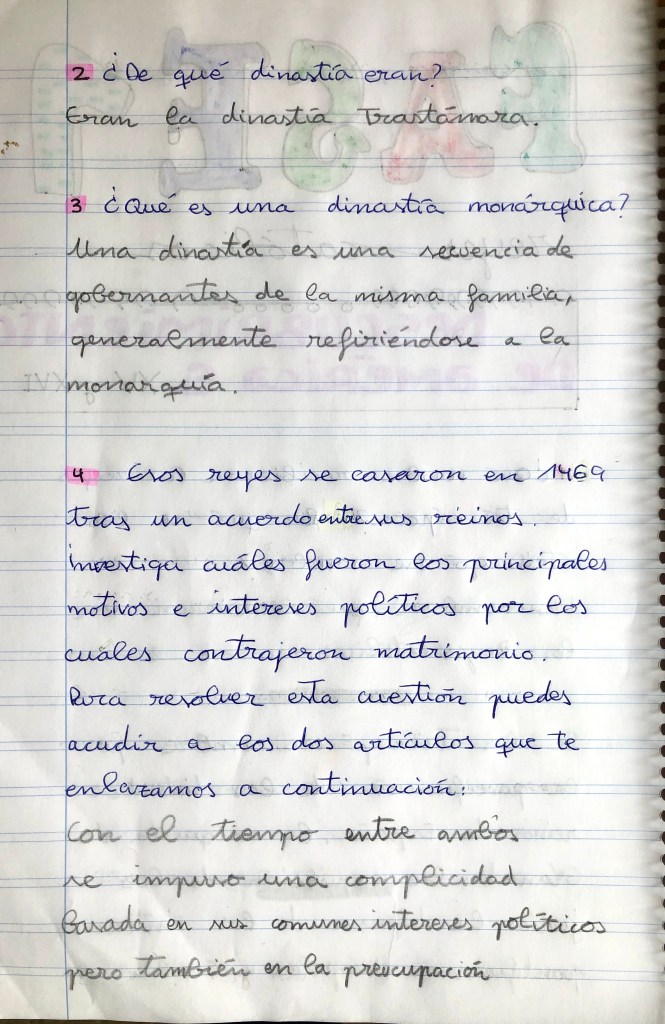 2 ¿De qué dinastía eran?
Eran la dinastía Trastámara.
3 ¿Qué es una dinastía monárquica?
Una dinastía es una secuencia de
gobernantes de la misma familia,
generalmente refiriéndose a la
monarquía.
4 Esos reyes se casaron en 1469
tras un acuerdo entre sus reinos.
investiga cuáles fueron los principales
motivos e intereses políticos por los
cuáles contrajeron matrimonio.
Para resolver esta cuestión puedes
acudir a los dos artículos que te
enlazamos a continuación:
Con el tiempo entre ambos
se impuso una complicidad
basada en sus comunes intereses políticos
pero también en la preucupación